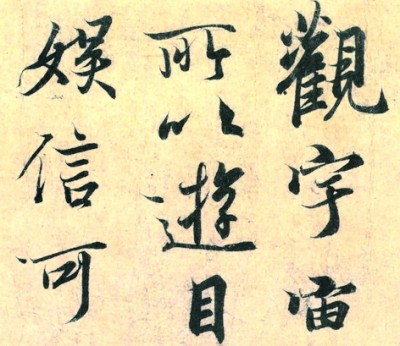 觀宇宙
所以遊目
娱信可